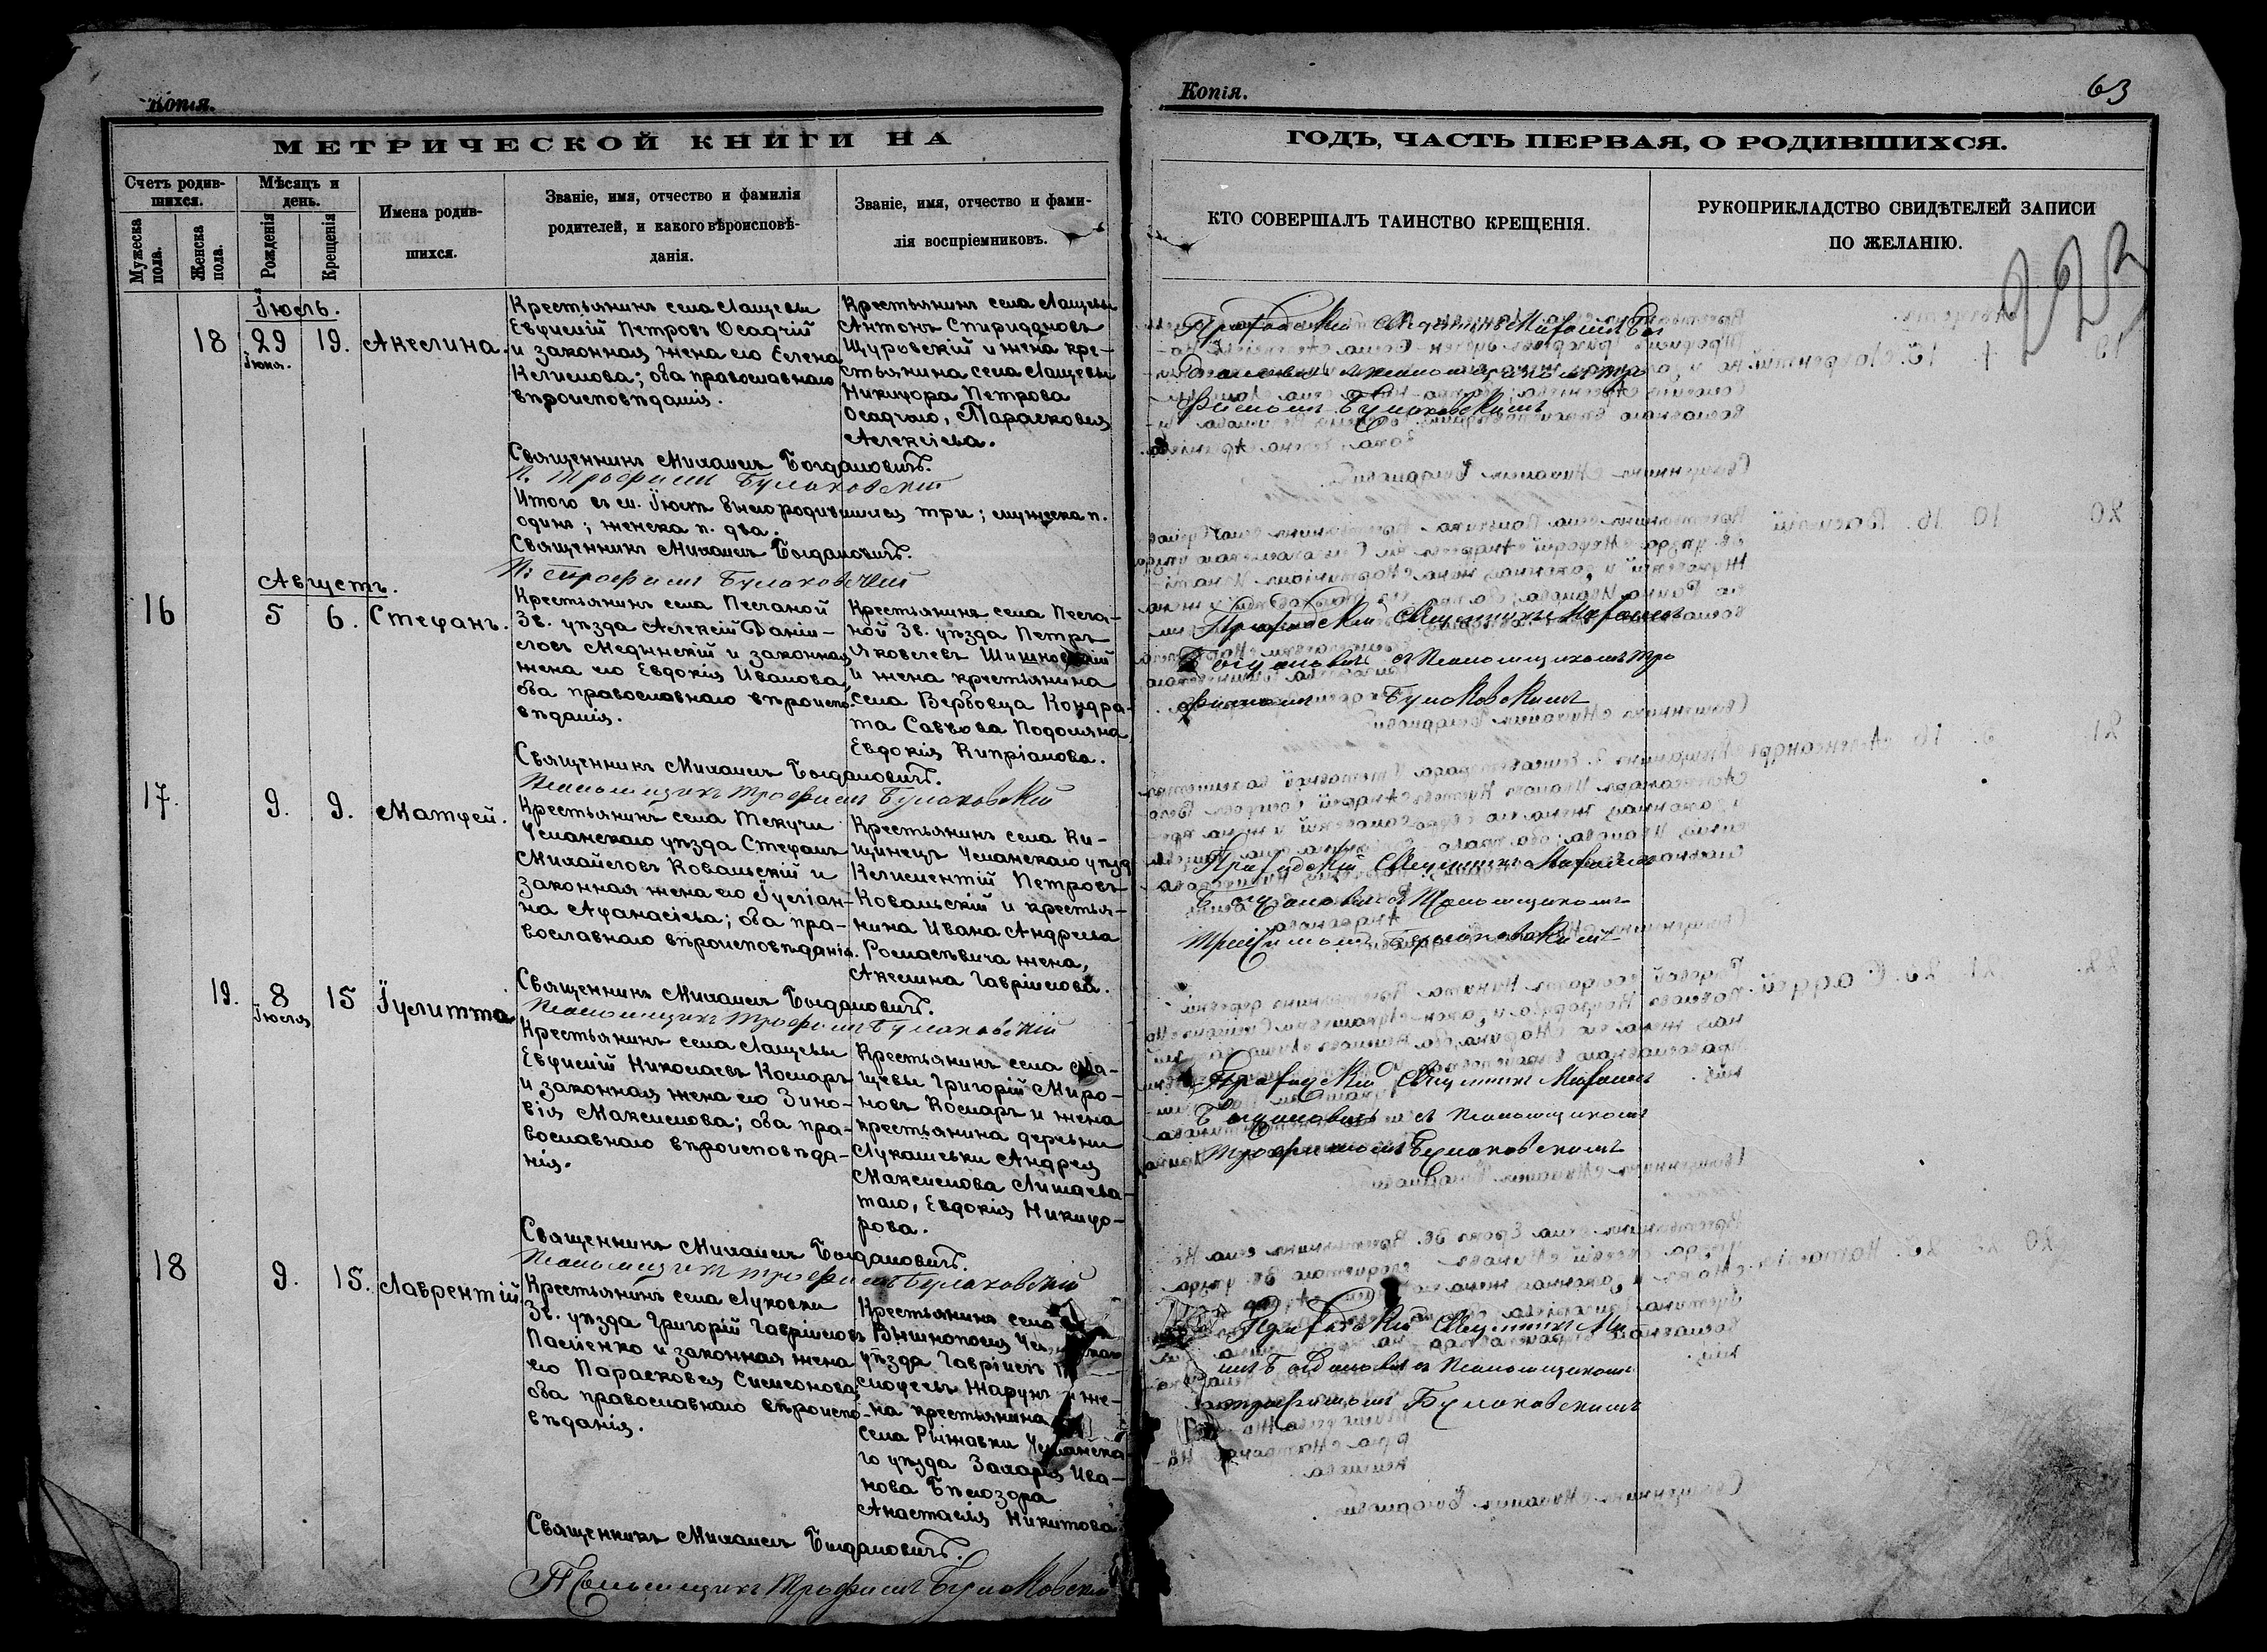 Копія.
МЕТРИЧЕСКОЙ КНИГИ НА
Счетъ родив-
шихся.
Мѣсяцъ и
день.
Мужеска
пола.
Женска
пола.
Рожденія
Крещенія
Имена родив-
шихся.
Званіе, имя, отчество и фамилія
родителей, и какого вѣроисповѣ-
данія.
Званіе, имя, отчество и фами-
лія воспріемниковъ.
Іюль.
18
29
Іюня.
19.
Акелина.
Крестьянинъ села Лащевы
Евфимій Петровъ Осадчій
и законная жена его Елена
Климова; оба православнаго
вѣроисповѣданія.
Крестьянинъ села Лащевы
Антонъ Спиридоновъ
Щуровскій и жена кре-
стьянина села Лащевы
Никифора Петрова
Осадчаго, Парасковія
Алексіева.
Священникъ Михаилъ Богдановичъ.
П. Трофимъ Булаховскій
Итого въ м. Іюлѣ было родившихся три; мужеска п.
одинъ; женска п. два.
Священникъ Михаилъ Богдановичъ.
П. Трофимъ Булаховскій
Августъ.
16
5
6.
Стефанъ.
Крестьянинъ села Песчаной
Зв. уѣзда Алексій Даніи-
ловъ Медынскій и законная
жена его Евдокія Иванова,
оба православнаго вѣроиспо-
вѣданія.
Крестьянинъ села Песча-
ной Зв. уѣзда Петръ
Яковлевъ
и жена крестьянина
села Вербовца Кондра-
та Саввова Подоляна
Евдокія Кипріанова.
Священникъ Михаилъ Богдановичъ.
Псаломщикъ Трофимъ Булаховскій
17.
9.
9.
Матфей.
Крестьянинъ села Текучи
Уманскаго уѣзда Стефанъ
Михайловъ Ковальскій и
законная жена его Іуліан-
на Афанасіева; оба пра-
вославнаго вѣроисповѣданія.
Крестьянинъ села Ки-
щинецъ Уманскаго уѣзд
Климентій Петровъ
Ковальскій и крестья-
нина Ивана Андреева
жена,
Акелина Гавріилова.
Священникъ Михаилъ Богдановичъ.
Псаломщикъ Трофимъ Булаховскій
19.
8
Іюля
15
Іулитта
Крестьянинъ села Лащевы
Евфимій Николаевъ Комаръ
и законная жена его Зино-
вія Максимова; оба пра-
вославнаго вѣроисповѣда-
нія.
Крестьянинъ села Ла-
щевы Григорій Миро-
новъ Комаръ и жена
крестьянина деревни
Лукашевки Андрея
Максимова
таго, Евдокія Никифо-
рова.
Священникъ Михаилъ Богдановичъ.
Псаломщикъ Трофимъ Булаховскій
18
9.
15.
Лаврентій.
Крестьянинъ села Луковки
Зв. уѣзда Григорій Гавріиловъ
Пасіенко и законная жена
его Парасковія Симеонова,
оба православнаго вѣроиспо-
вѣданія.
Крестьянинъ села
Вишнополя
уѣзда Гавріилъ
Жарунъ и же-
на крестьянина
села Рыжавки Уманска-
го уѣзда Захарія Ива-
нова Бѣлозора
Анастасія Никитова.
Священникъ Михаилъ Богдановичъ.
Псаломщикъ Трофимъ Булаховскій
Копія.
63
ГОДЪ, ЧАСТЬ ПЕРВАЯ, О РОДИВШИХСЯ.
КТО СОВЕРШАЛЪ ТАИНСТВО КРЕЩЕНІЯ.
РУКОПРИКЛАДСТВО СВИДѢТЕЛЕЙ ЗАПИСИ
ПО ЖЕЛАНІЮ.
223
Приходскій Священникъ Михаилъ Бог
дановичъ съ псаломщикомъ Тро
фимомъ Булаховскимъ
Приходскій Священникъ Михаилъ
Богдановичъ съ псаломщикомъ Тро
фимомъ Булаховскимъ
Приходскій Священникъ Михаилъ
Богдановичъ съ Псаломщикомъ
Трофимомъ Булаховскимъ
Приходскій Священникъ Михаилъ
Богдановичъ съ псаломщикомъ
Трофимомъ Булаховскимъ
Приходскій Священникъ Ми
илъ Богдановичъ съ псаломщикомъ
Трофимомъ Булаховскимъ